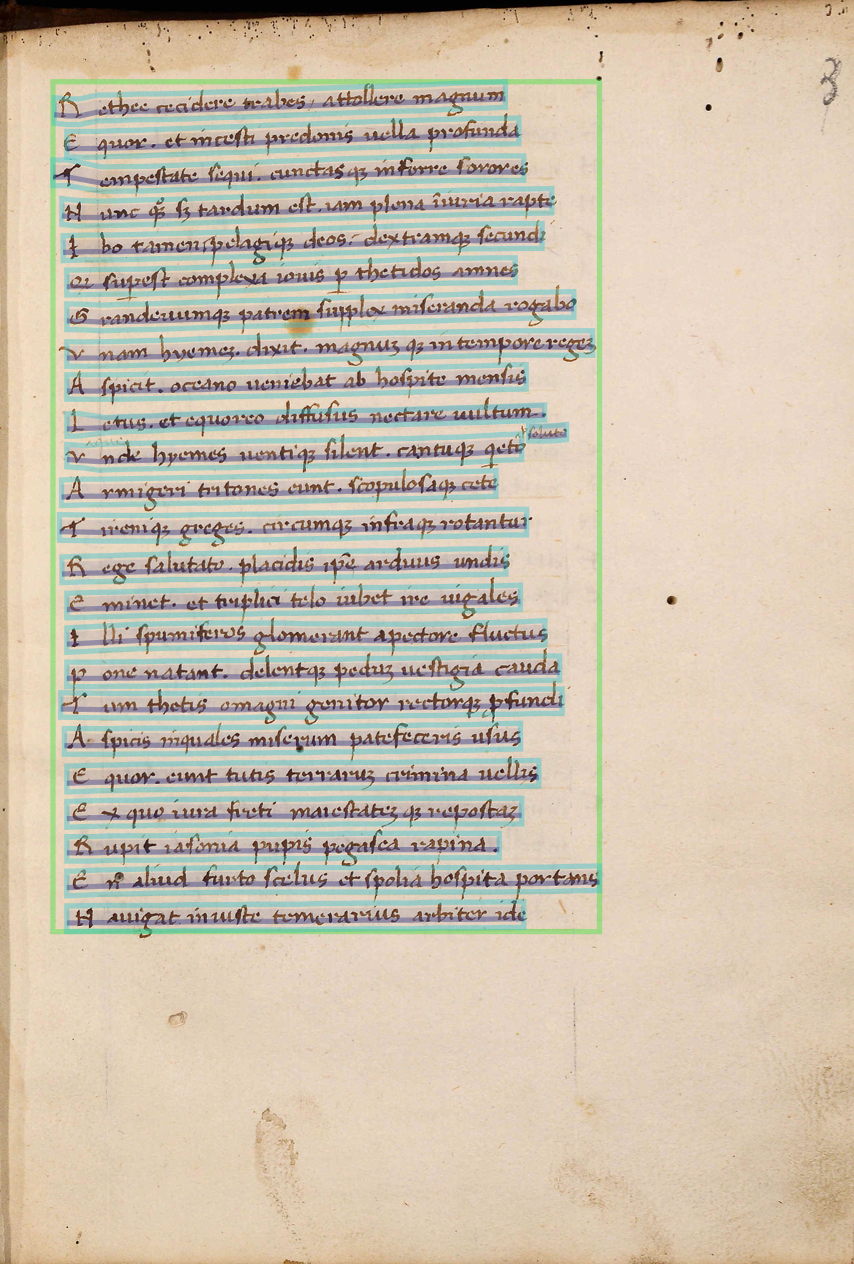 R ethee cecidere trabes, attollere magnum
E quor. et incesti predonis uella profunda
T empestate sequi. cunctasqꝫ inferre sorores
N unc qᷓꝫ sꝫ tardum est. iam plena iīuria rapte
I bo tamen; pelagiqꝫ deos. dextramqꝫ secundi
Qꝫ suꝑest complexa iouis ꝑ thetidos amnes
G randeuumqꝫ patrem supplex miseranda rogabo
V nam hyemeꝫ. dixit. magnuꝫ qꝫ in tempore regeꝫ
A spicit. oceano ueniebat ab hospite mensis
L etus. et equoreo diffusus nectare uultum.
V nde hyemes uentiqꝫ silent. cantuqꝫ q̇eto
A rmigeri tritones eunt. scopulosaqꝫ cete
T ireniqꝫ greges. circumqꝫ infraqꝫ rotantur
R ege salutato. placidis ip̄e arduus undis
E minet. et triplici telo iubet ire uigales
I lli spumiferos glomerant apectore fluctus
P one natant. delentqꝫ peduꝫ uestigia cauda
T um thetis omagni genitor rectorqꝫ ꝓfundi
A spicis inquales miserum patefeceris usus
E quor. eunt tutis terraruꝫ crimina uellis
E x quo iura freti maiestateꝫ qꝫ repostaꝫ
R upit iasonia pupis pegasea rapina.
E n° aliud furto scelus et spolia hospita portans
N auigat iniuste temerarius arbiter ide